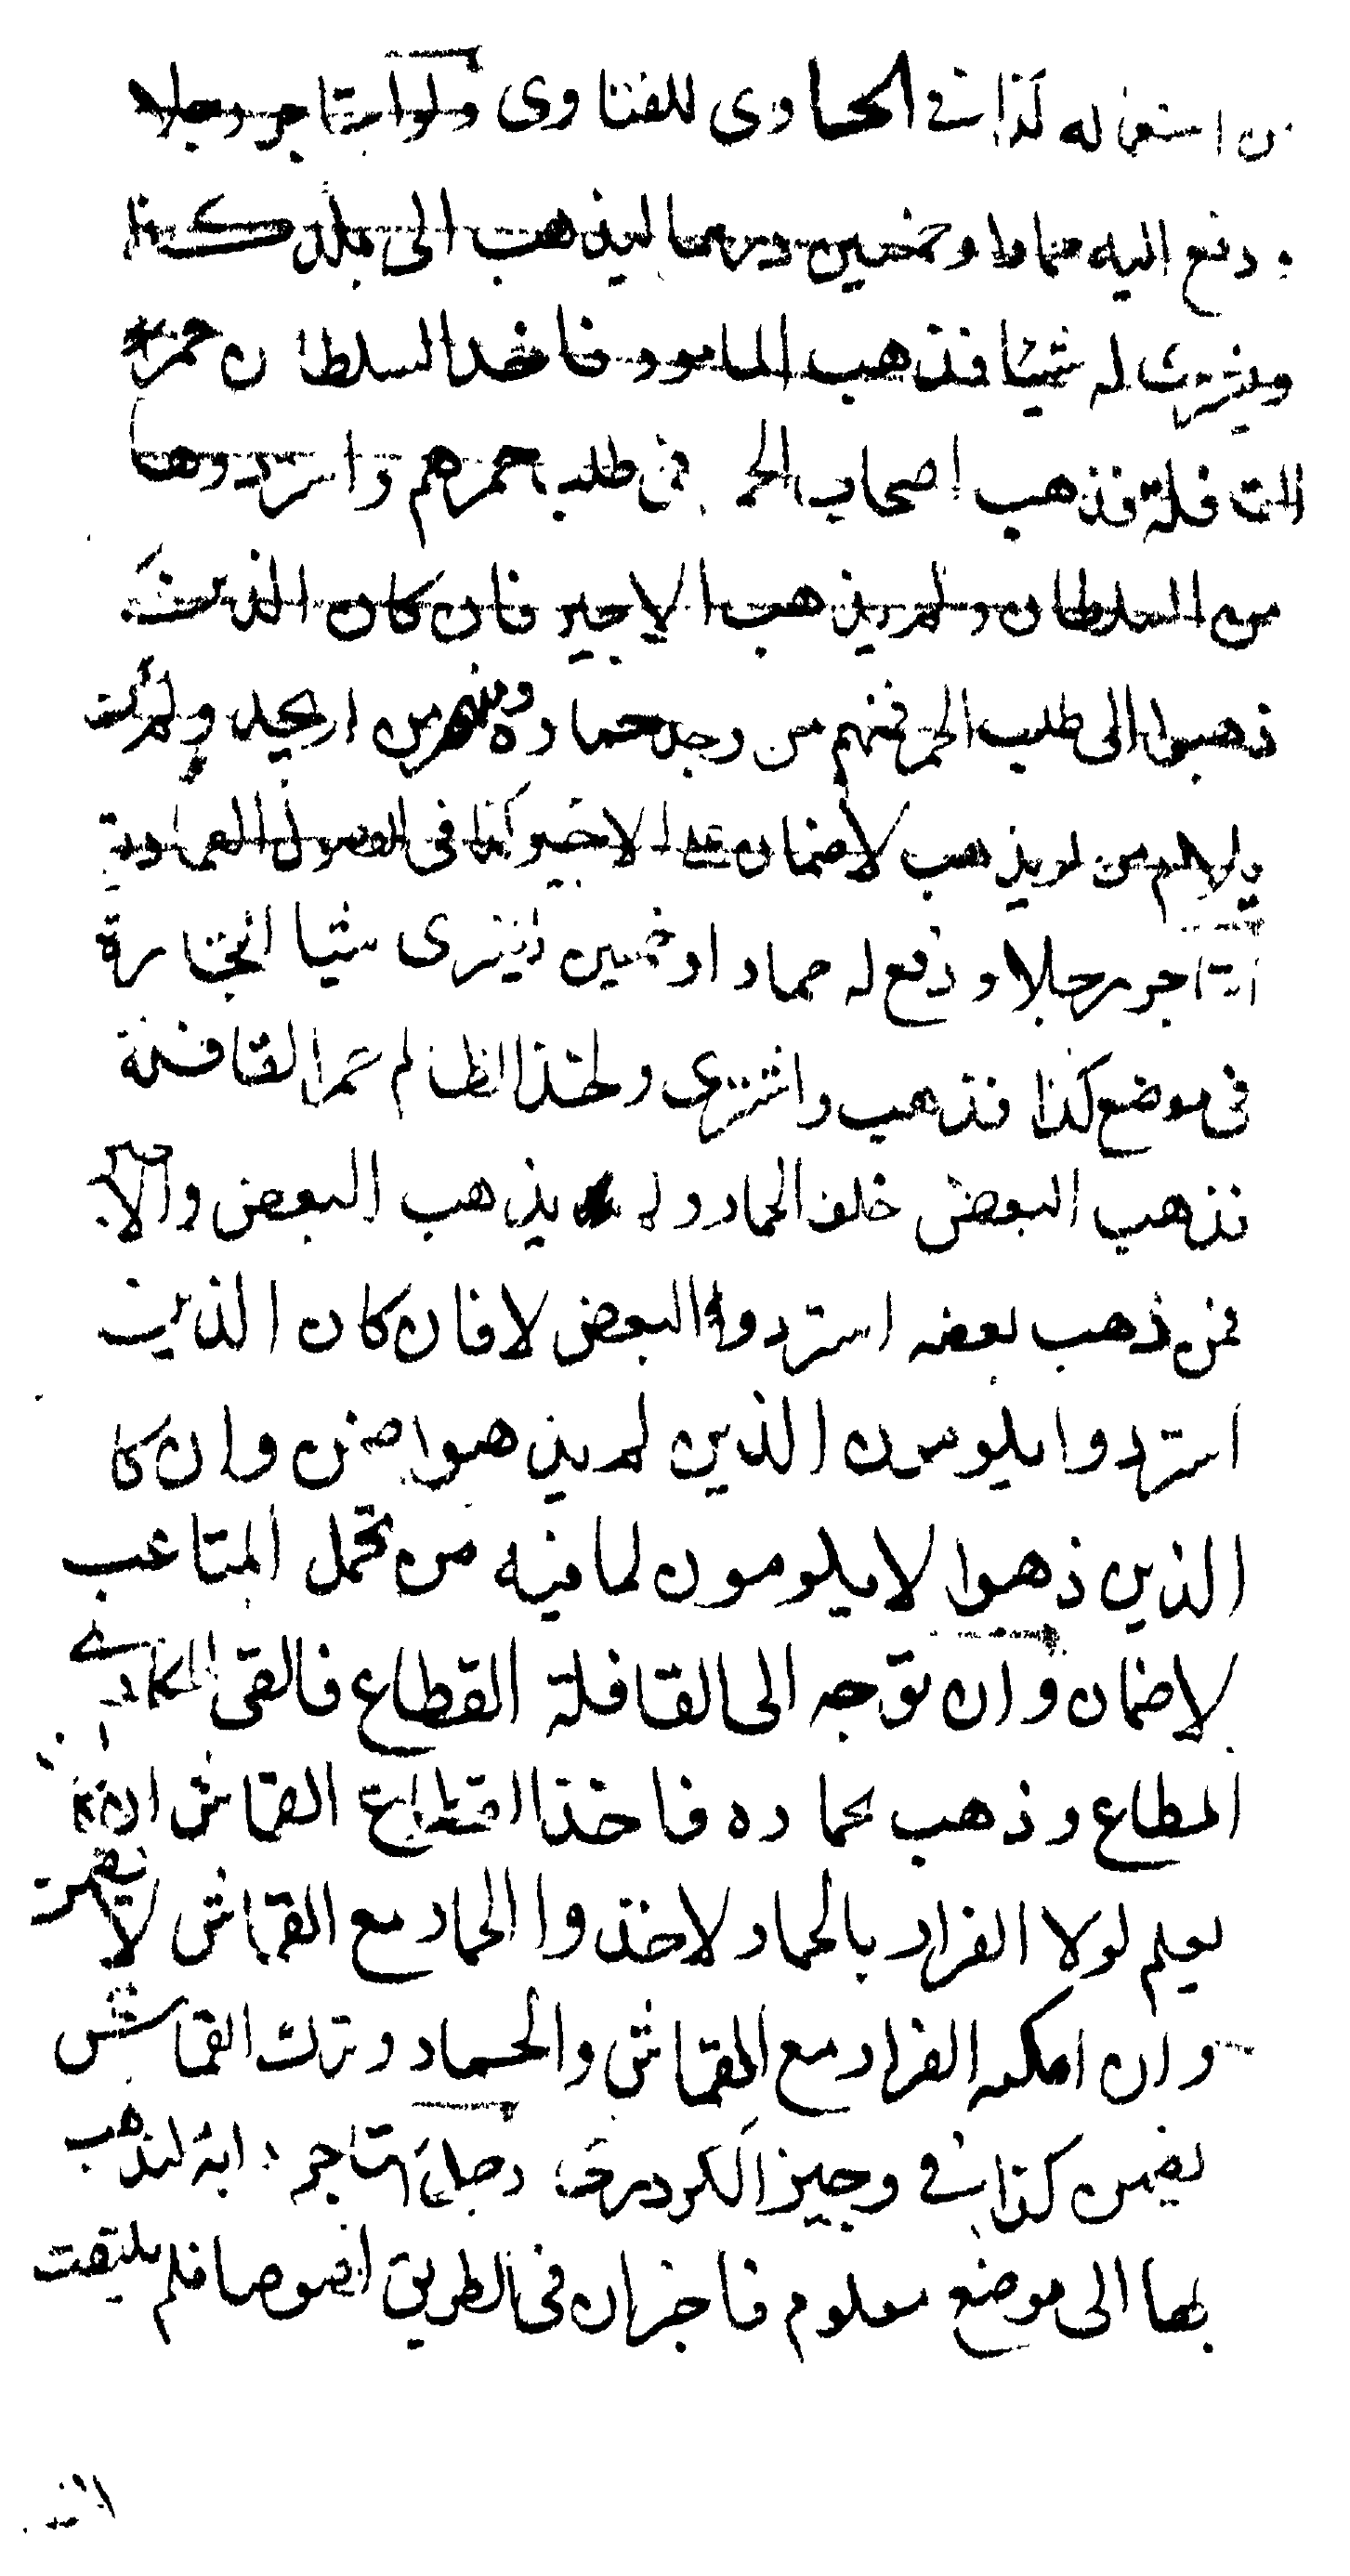 من استعماله كذا في الحاوى للفتاوى ولو استاجر رجلا
ودفع اليه حمارا وخمسين درهما ليذهب الى بلد كذا
ويشترى له شيئا فذهب المامور فاخذ السلطان حمر
القافلة فذهب اصحاب الحمر فى طلب حمرهم واستردوها
من السلطان ولم يذهب الاجير فان كان الذين
ذهبوا الى طلب الحمر فمنهم من وجد حماره ومنهم من لم يجد ولم
يلاام من لم يذهب لا ضمان على الاجير كذا فى الفصول العمادية
استاجر رجلا ودفع له حمارا وخمسين ليشترى شيئا للتجارة
فى موضع كذا فذهب واشترى واخذ الظالم حمر القافلة
فذهب البعض خلف الحمار ولم يذهب البعض والاجير
فمن ذهب بعضه استردوا والبعض لا فان كان الذين
استردوا يلومون الذين لم يذهبوا ضمن وان كا
الذين ذهبوا لا يلومون لما فيه من تحمل المتاعب
لا ضمان وان توجه الى القافلة القطاع فالقى المكارى
المطاع وذهب بحماره فاخذ القطاع القماش ان كان
يعلم لولا الفرار بالحمار لاخذوا الحمار مع القماش لا يضمن
وان امكنه الفرار مع القماش والحمار وترك القماش
يضمن كذا فى وجيز الكردرى رجل استاجر دابة ليذهب
بها الى موضع معلوم فاخبر ان فى الطريق لصوصا فلم يلتفت